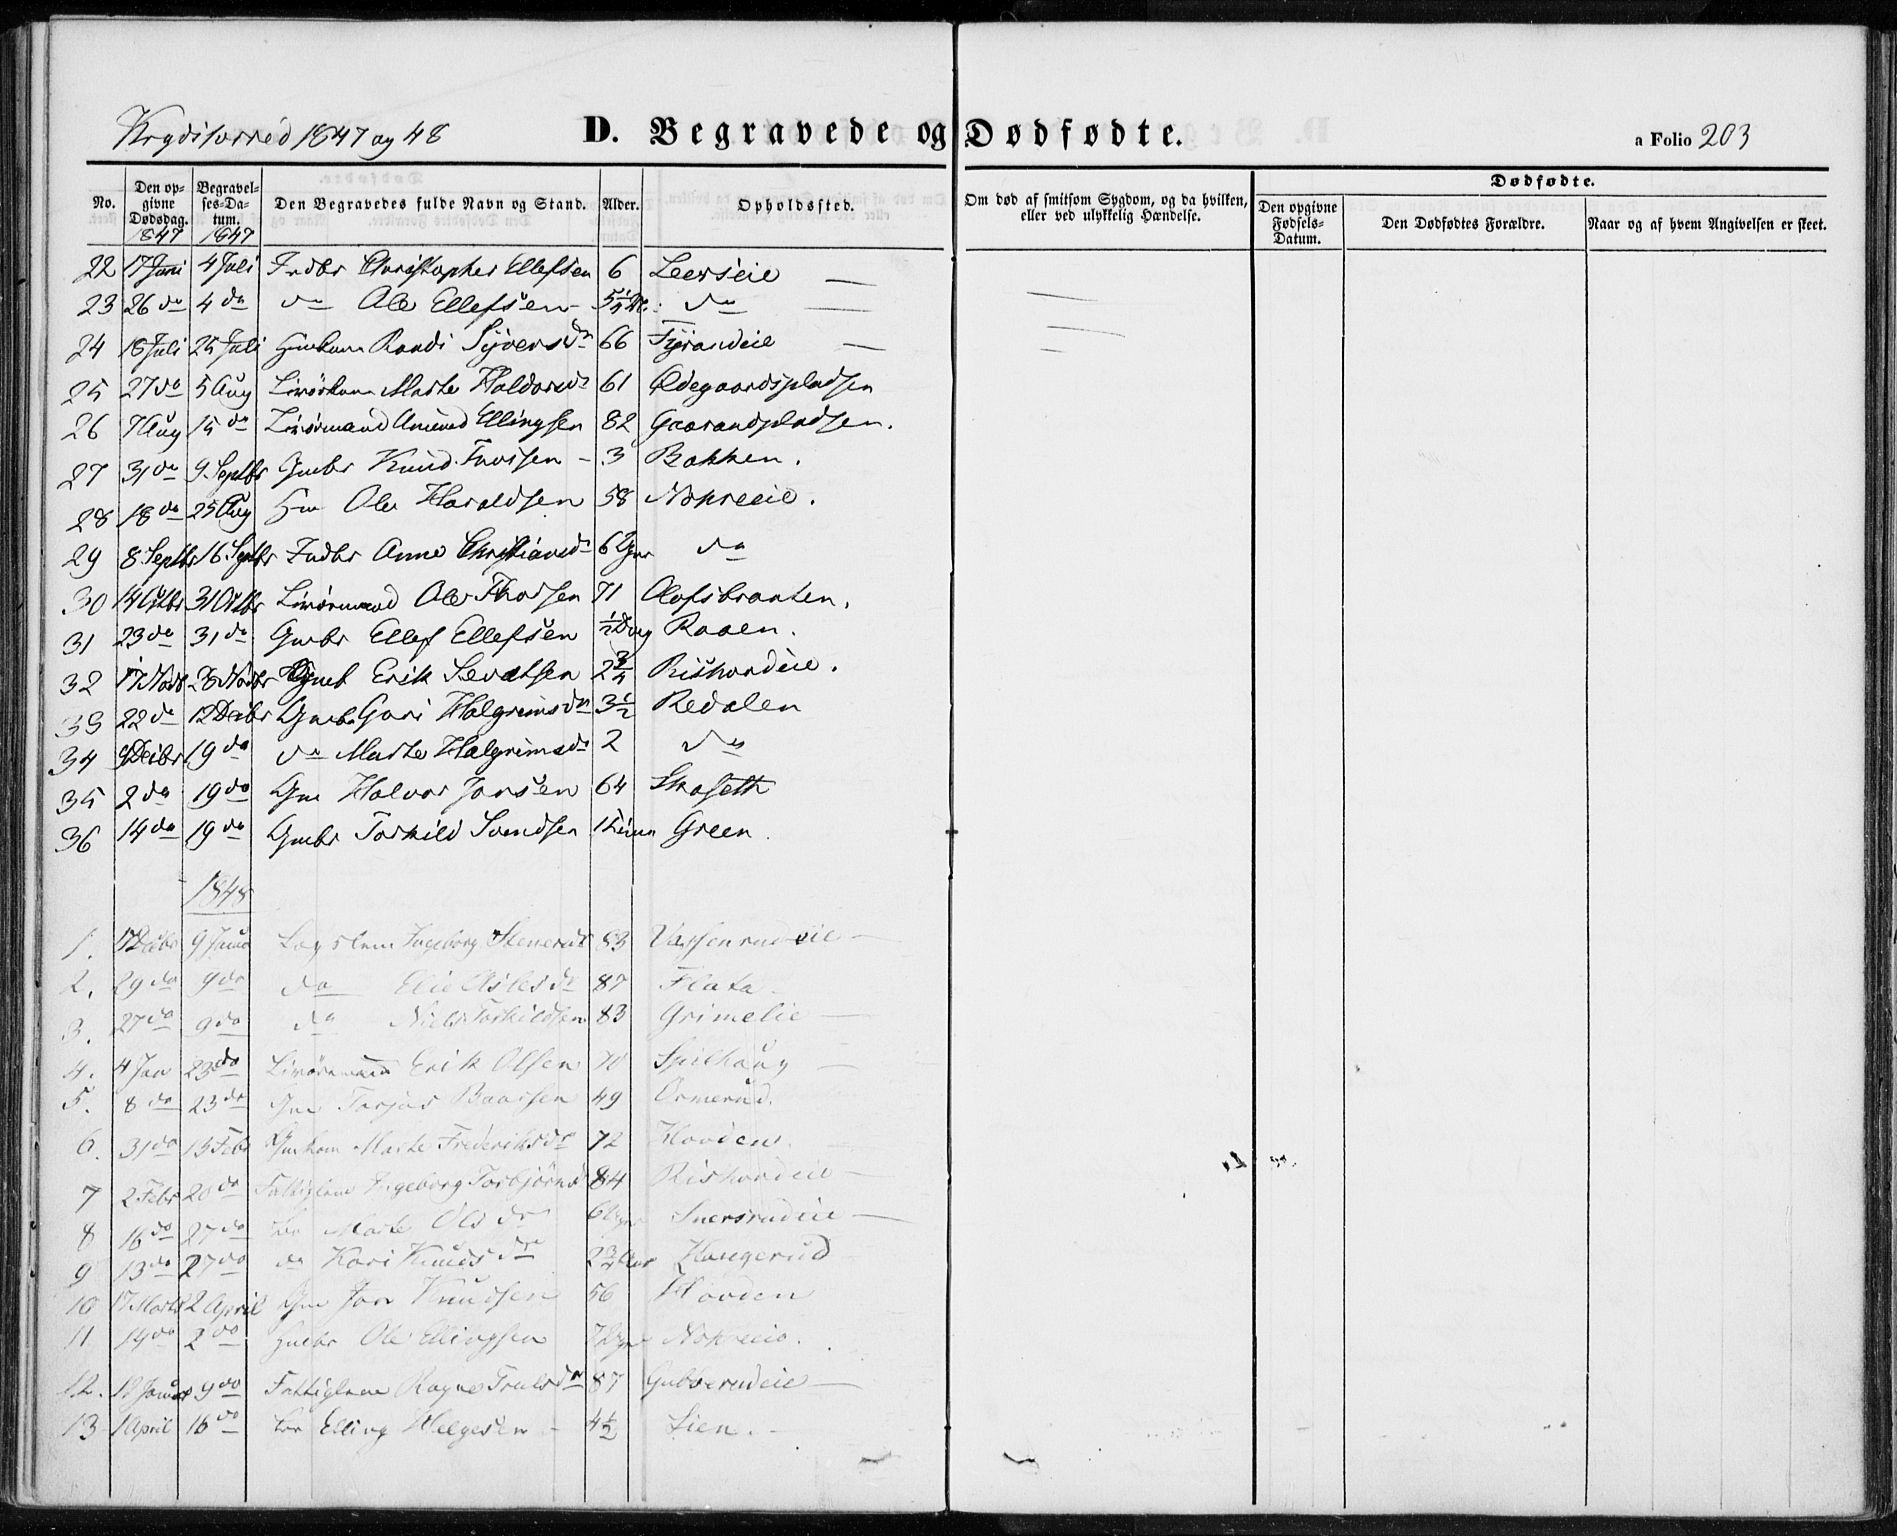 Krydsherred 1847 og 48
D. Begravede og Dødfødte.
a Folio 203
No. Den opgivne Dødsdag. Begravelses-Datum. Den Begravedes fulde Navn og Stand. Alder. Opholdssted. Om død af smitsom Sygdom, og da hvilken, eller ved ulykkelig Hændelse. Dødfødte. Den opgivne Fødsels-Datum. Den Dødfødtes Forældre. Naar og af hvem Angivelsen er skeet.
1847 1847
22 17 Juni 4 Juli Indbr Christopher Ellefsen 6 Leerseie —
23 26 do 4 do do Ole Ellefsen do —
24 18 Juli 25 Juli Randi Syversdr 66 —
25 27 do 5 Aug Marte Haldorsdr 61 Ødegaardspladsen
26 7 Aug 15 do Livørmand Amund Ellingsen 82 Graarandpladsen.
27 31 do 9 Septbr Gmbr Knud 3 Bakken.
28 18 do 25 Aug Hm Ole Haraldsen 58 Nokreeie.
29 8 Septbr 16 Septbr Indbr Anne Christiansdr do
30 14 Octbr 31 Octbr Livørmand Ole Thorsen 71 Olafsbraaten.
31 23 do 31 do Gmbr Ellef Ellefsen 1/2 Dag Raaen.
32 17 Novb 28 Novbr Gmb Erik 2 3/4 Riishovdeie.
33 22 do 12 Decbr Gmbr Guri Halgrimsdr 3 1/2 Redalen
34 Decbr 19 do do Marte Halgrimsdr 2 do
35 2 do 19 do Gm Halvor Jonsen 64 Skaseth
36 14 do 19 do Gmbr Torkild Svendsen 1 Time Green
1848
1. 17 Decbr 9 Janua Lægslem Ingeborg 83 Vassenrudeie —
2. 29 do 9 do do Elie Aslesdr 87 Flata
3. 27 do 9 do do Niels Torkildsen 83 Grimelie —
4. 4 Jan 23 do Livørmand Erik Olsen 70 Spilhaug —
5. 8 do 23 do Gm Torjus Baarsen 49 Ormerud.
6. 31 do 13 Febr Gmkone Marte Frederiksdr 72 Hovden.
7 2 Febr 20 do Fattiglem Ingeborg Torbjørnsd 84 Rishovdeie —
8 16 do 27 do Marte Olsdr Snersrudeie —
9 13 do 27 do do Kari Knudsdr 2 3/4 Aar Haugerud
10 17 Marts 2 April Gm Jon Knudsen 56 Hovden
11 14 do 2 do Ole Ellingsen Nokreeie.
12. Januar 9 do Fattiglem Ragne Trulsdr 87 Gubberudeie —
13 1 April 16 do Elling Helgesen – 4 1/2 Lien. –